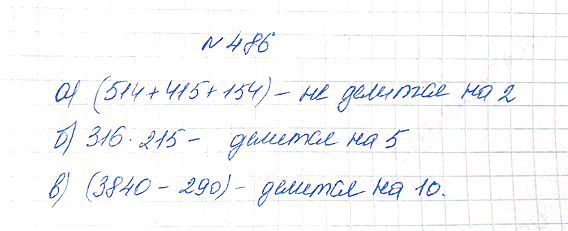 № 486
а) (514 + 415 + 154) - не делится на 2
б) 316 · 215 - делится на 5
в) (3840 - 290) - делится на 10.